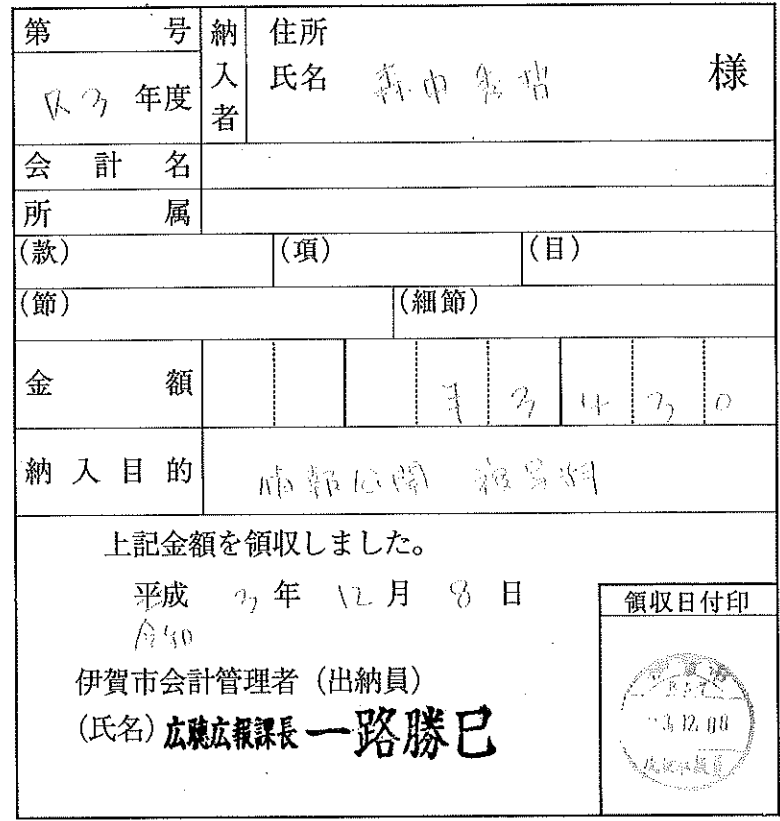 第 号
R3 年度
納入者
住所
氏名 森中秀哲 様
会計名
所属
(款) (項) (目)
(節) (細節)
金額 ¥3430
納入目的 情報公開 複写料
上記金額を領収しました。
平成 3年 12月 8日
令和
伊賀市会計管理者(出納員)
(氏名)広聴広報課長 一路勝巳
領収日付印
3.12.08